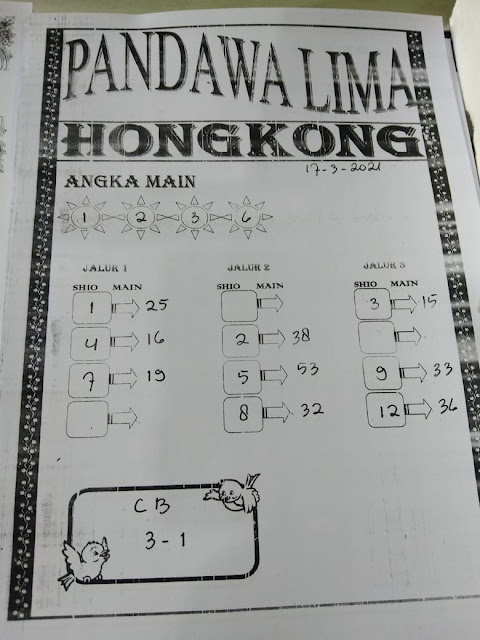 PANDAWA LIMA
HONGKONG
17-3-2021
ANGKA MAIN
1 2 3 6
JALUR 1 JALUR 2 JALUR 3
SHIO MAIN SHIO MAIN SHIO MAIN
1 25 3 15
4 16 2 38
7 19 5 53 9 33
8 32 12 36
CB
3 - 1